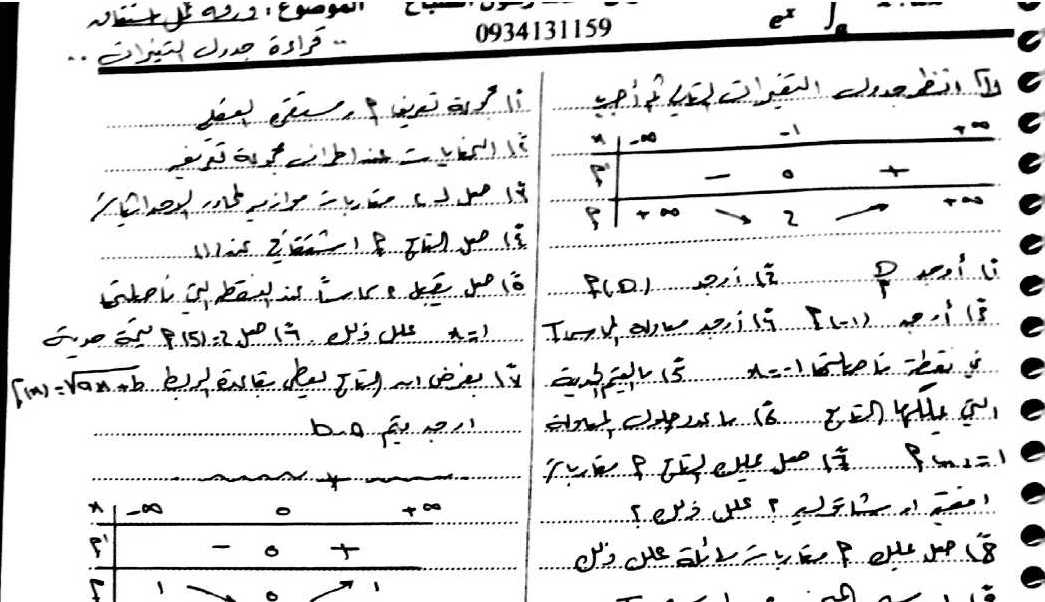 الموضوع: ورقة عمل اشتقاق
0934131159
e^x
.. قراءة جدول التغيرات ..
انظر جدول التغيرات التالي ثم أجب
x -∞ -1 +∞
f' - 0 +
f +∞ ↘ 2 ↗ +∞
1) أوجد D_f 2) أوجد f(D)
3) أوجد f(-1) 4) أوجد معادلة المماس T
في نقطة فاصلتها x=-1 5) ما القيم الحدية
التي يملكها التابع 6) ما عدد حلول المعادلة
f(x)=1 7) هل يملك التابع f مقاربات
أفقية أو شاقولية ؟ علل ذلك ؟
8) هل يملك f مقاربات مائلة علل ذلك
1) مجموعة تعريف f ومستقره الفعلي
2) النهايات عند أطراف مجموعة تعريفه
3) هل لـ c مقاربات موازية لمحاور الإحداثيات
4) هل التابع f اشتقاقي عند
5) هل يقبل c مماساً عند النقطة التي فاصلتها
x=1 علل ذلك 6) هل f(5)=2 قيمة حدية
7) بفرض أن التابع يعطى بقاعدة الربط f(x)=√ax+b
أوجد قيم a، b
x -∞ 0 +∞
f' - 0 +
f 1 ↘ 0 ↗ 1